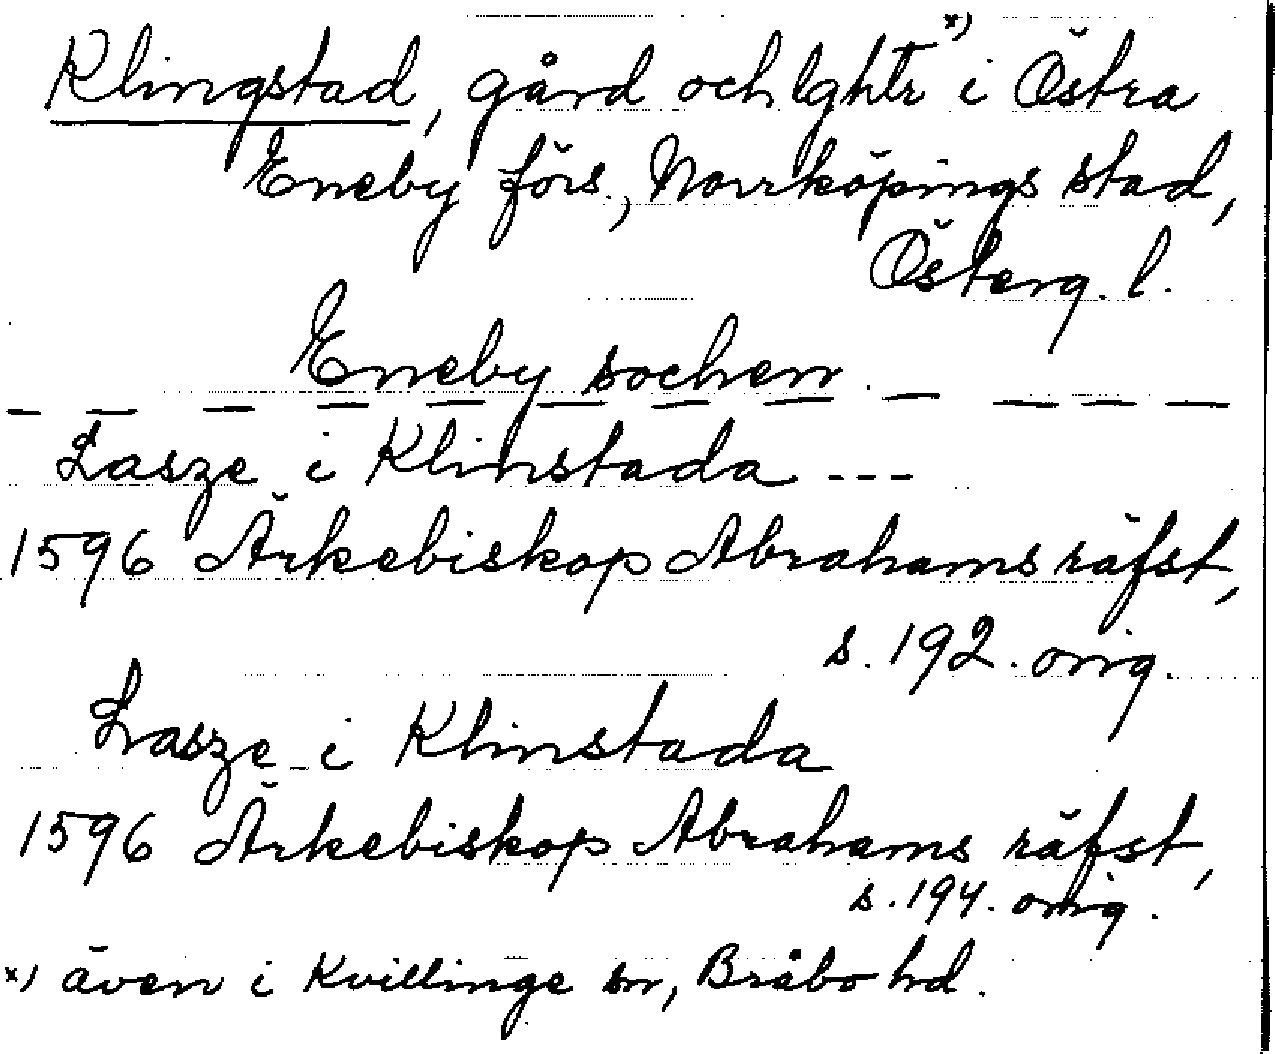 Klingstad, gård och lghtr x) i Östra
Eneby förs., Norrköpings stad,
Österg. l.
Eneby sochen
Lasze i Klinstada ---
1596 Ärkebiskop Abrahams räfst,
s. 192. orig.
Lasze i Klinstada
1596 Ärkebiskop Abrahams räfst,
s. 194. orig.
x) även i Kvillinge sn, Bråbo hd.